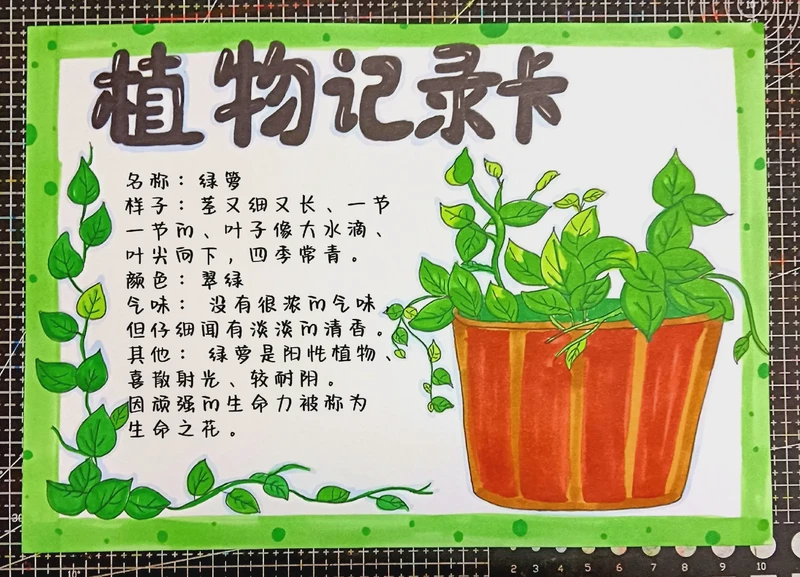 植物记录卡
名称：绿萝
样子：茎又细又长、一节
一节的、叶子像大水滴、
叶尖向下，四季常青。
颜色：翠绿
气味：没有很浓的气味、
但仔细闻有淡淡的清香。
其他：绿萝是阳性植物、
喜散射光、较耐阴。
因顽强的生命力被称为
生命之花。
30
10°
2 3 4 5 6 7 8 9 10